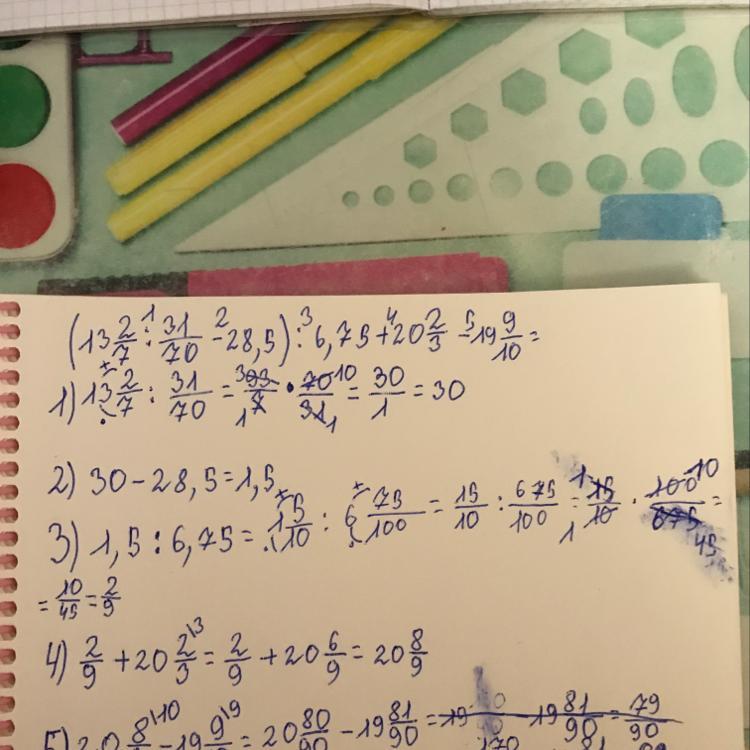 (13 2/7 : 31/70 - 28,5) : 6,75 + 20 2/3 - 19 9/10 =
1) 13 2/7 : 31/70 = 93/7 • 70/31 = 30/1 = 30
2) 30 - 28,5 = 1,5
3) 1,5 : 6,75 = 1 5/10 : 6 75/100 = 15/10 : 675/100 = 15/10 · 100/675 =
= 10/45 = 2/9
4) 2/9 + 20 2/3 = 2/9 + 20 6/9 = 20 8/9
5) 20 8/9 - 19 9/10 = 20 80/90 - 19 81/90 = 19 81/90 = 79/90